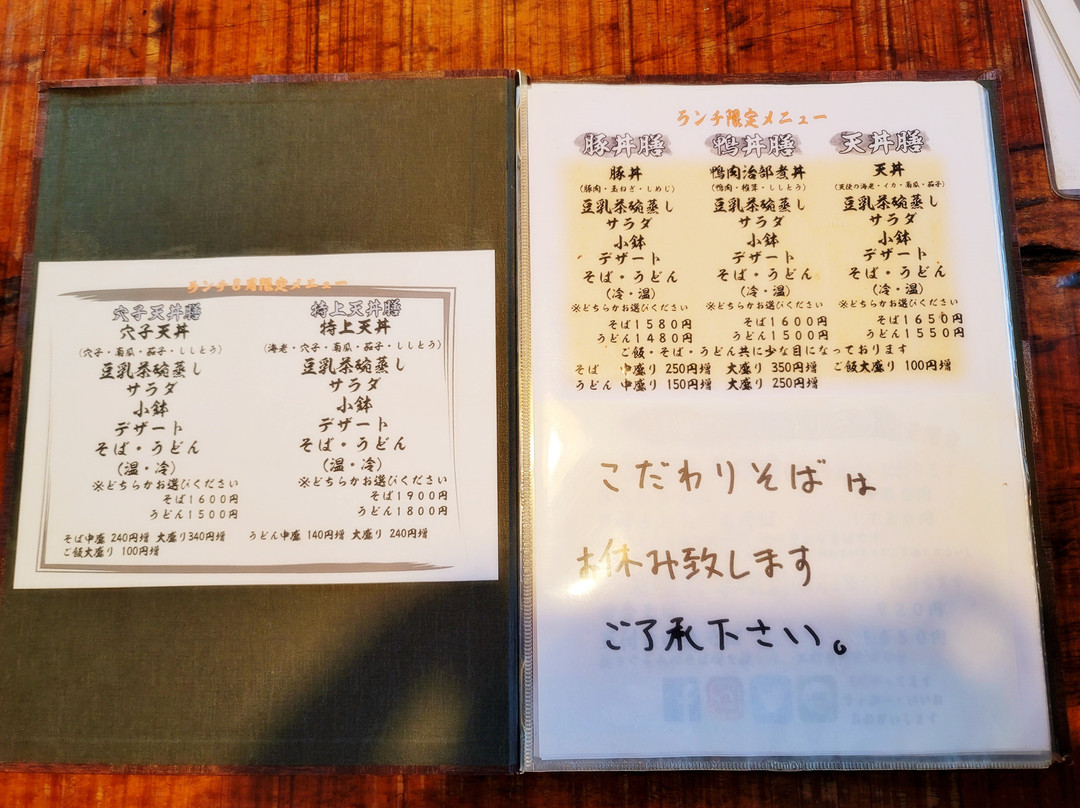 ランチ8月限定メニュー
穴子天丼膳
穴子天丼
(穴子・南瓜・茄子・ししとう)
豆乳茶碗蒸し
サラダ
小鉢
デザート
そば・うどん
(温・冷)
※どちらかお選びください
そば1600円
うどん1500円
特上天丼膳
特上天丼
(海老・穴子・南瓜・茄子・ししとう)
豆乳茶碗蒸し
サラダ
小鉢
デザート
そば・うどん
(温・冷)
※どちらかお選びください
そば1900円
うどん1800円
そば中盛 240円増 大盛り340円増 うどん中盛 140円増 大盛り 240円増
ご飯大盛り 100円増
ランチ限定メニュー
豚丼膳
豚丼
(豚肉・玉ねぎ・しめじ)
豆乳茶碗蒸し
サラダ
小鉢
デザート
そば・うどん
(冷・温)
※どちらかお選びください
そば1580円
うどん1480円
鴨丼膳
鴨肉治部煮丼
(鴨肉・椎茸・ししとう)
豆乳茶碗蒸し
サラダ
小鉢
デザート
そば・うどん
(冷・温)
※どちらかお選びください
そば1600円
うどん1500円
天丼膳
天丼
(天使の海老・イカ・南瓜・茄子)
豆乳茶碗蒸し
サラダ
小鉢
デザート
そば・うどん
(冷・温)
※どちらかお選びください
そば1650円
うどん1550円
ご飯・そば・うどん共に少な目になっております
そば 中盛り 250円増 大盛り 350円増 ご飯大盛り 100円増
うどん 中盛り 150円増 大盛り 250円増
こだわりそばは
お休み致します
ご了承下さい。